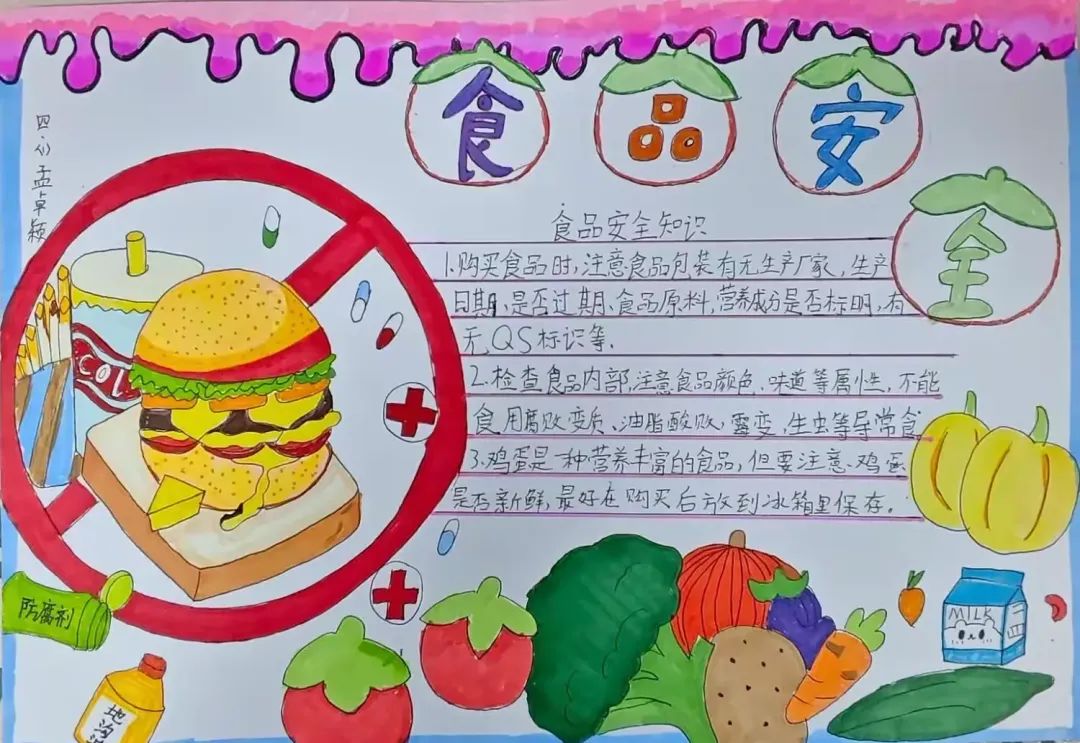 食品安
全
四.(1)孟卓颖
食品安全知识
1.购买食品时,注意食品包装有无生产厂家,生产
日期,是否过期、食品原料,营养成分是否标明,有
无QS标识等.
2.检查食品内部,注意食品颜色、味道等属性,不能
食用腐败变质、油脂酸败,霉变,生虫等异常食
3.鸡蛋是一种营养丰富的食品,但要注意、鸡蛋
是否新鲜,最好在购买后放到冰箱里保存.
COL
防腐剂
地沟
MILK